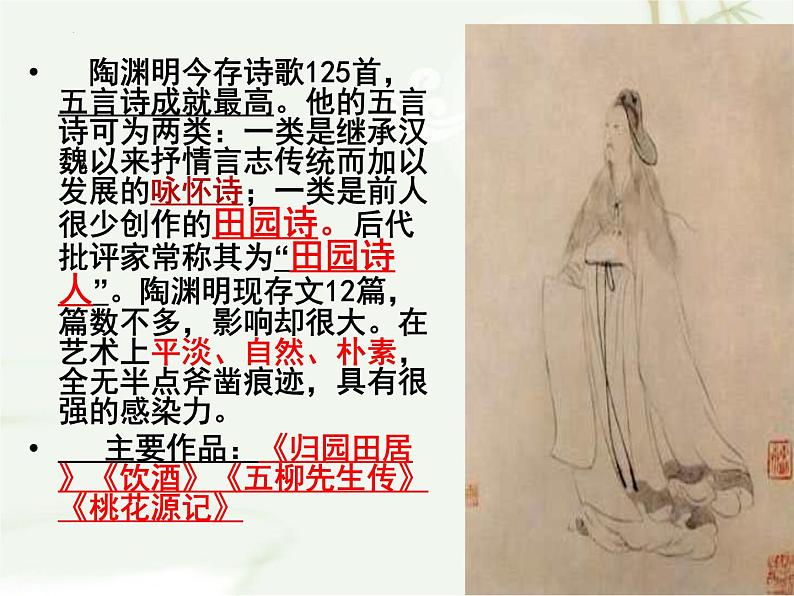 • 陶渊明今存诗歌125首，
五言诗成就最高。他的五言
诗可为两类：一类是继承汉
魏以来抒情言志传统而加以
发展的咏怀诗；一类是前人
很少创作的田园诗。后代
批评家常称其为“田园诗
人”。陶渊明现存文12篇，
篇数不多，影响却很大。在
艺术上平淡、自然、朴素，
全无半点斧凿痕迹，具有很
强的感染力。
• 主要作品：《归园田居
》《饮酒》《五柳先生传》
《桃花源记》